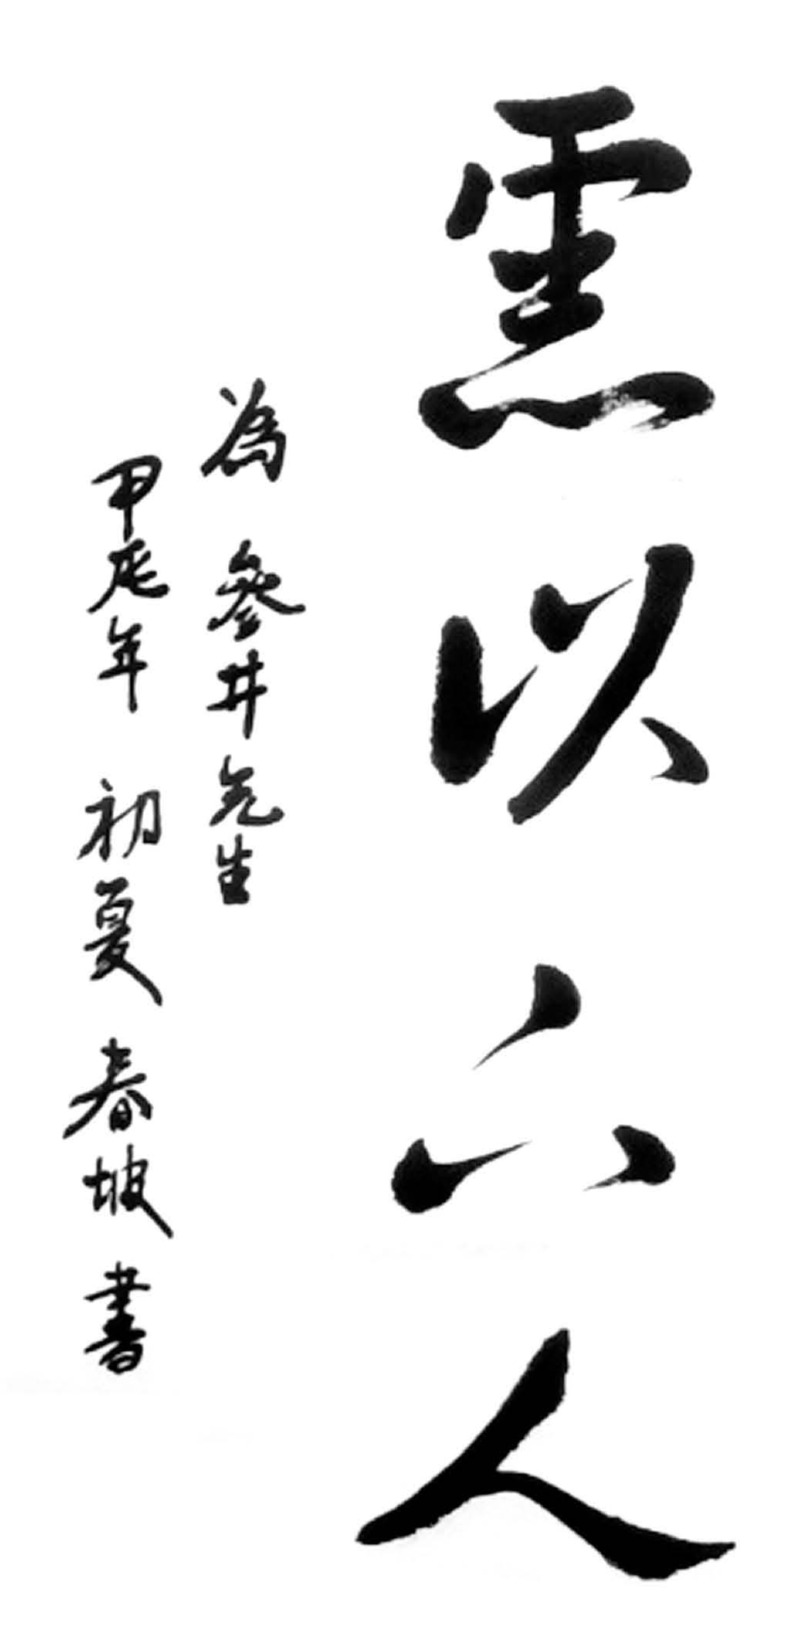 慮以下人
為 參井先生
甲辰年 初夏 春坡 書